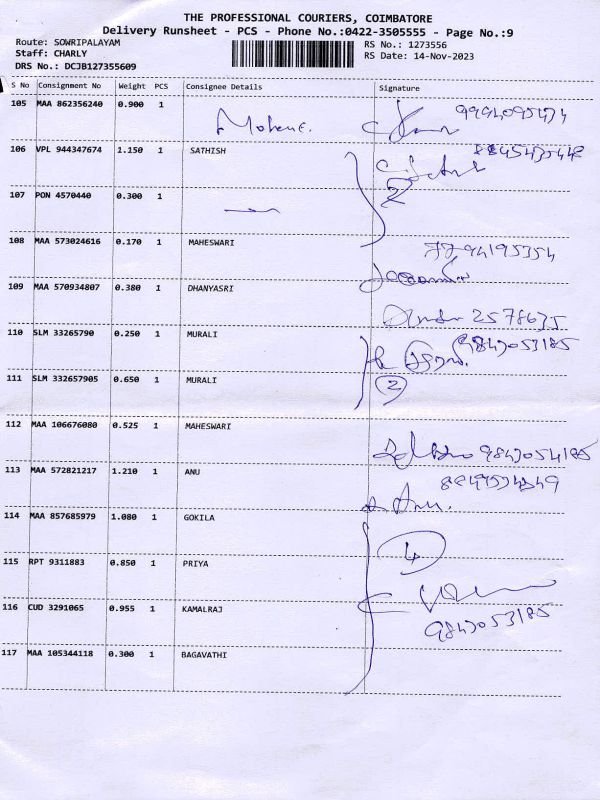 THE PROFESSIONAL COURIERS, COIMBATORE
Delivery Runsheet - PCS - Phone No.:0422-3505555 - Page No.:9
Route: SOWRIPALAYAM
Staff: CHARLY
DRS No.: DCJB127355609
RS No.: 1273556
RS Date: 14-Nov-2023
S No Consignment No Weight PCS Consignee Details Signature
105 MAA 862356240 0.900 1
106 VPL 944347674 1.150 1 SATHISH
107 PON 4570440 0.300 1
2
108 MAA 573024616 0.170 1 MAHESWARI
109 MAA 570934807 0.380 1 DHANYASRI
2578675
110 SLM 33265790 0.250 1 MURALI
9843053185
111 SLM 332657905 0.650 1 MURALI
2
112 MAA 106676080 0.525 1 MAHESWARI
9843054185
113 MAA 572821217 1.210 1 ANU
Anu.
114 MAA 857685979 1.080 1 GOKILA
4
115 RPT 9311883 0.850 1 PRIYA
116 CUD 3291065 0.955 1 KAMALRAJ
9843053185
117 MAA 105344118 0.300 1 BAGAVATHI